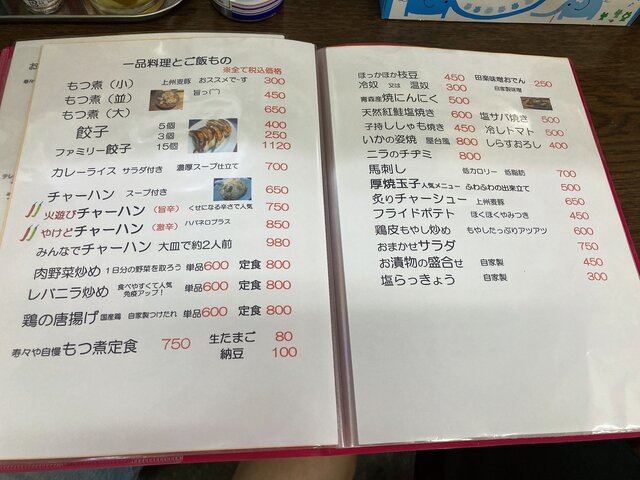 一品料理とご飯もの
※全て税込価格
もつ煮（小） 上州麦豚 おススメで～す 300
もつ煮（並） 旨っ(⌒) 450
もつ煮（大） 650
餃子 5個 400
3個 250
ファミリー餃子 15個 1120
カレーライス サラダ付き 濃厚スープ仕立て 700
チャーハン スープ付き 650
火遊びチャーハン（旨辛） くせになる辛さで人気 750
やけどチャーハン（激辛） ハバネロプラス 850
みんなでチャーハン 大皿で約2人前 980
肉野菜炒め 1日分の野菜を取ろう 単品600 定食 800
レバニラ炒め 食べやすくて人気 免疫アップ！ 単品600 定食 800
鶏の唐揚げ 国産鶏 自家製つけだれ 単品600 定食 800
寿々や自慢 もつ煮定食 750 生たまご 80
納豆 100
ほっかほか枝豆 450 田楽味噌おでん 250
冷奴 又は 温奴 300 自家製味噌
青森産焼にんにく 500
天然紅鮭塩焼き 600 塩サバ焼き 500
子持ししゃも焼き 450 冷しトマト 500
いかの姿焼 屋台風 800 しらすおろし 500
ニラのチヂミ 800
馬刺し 低カロリー 低脂肪 700
厚焼玉子 人気メニュー ふわふわの出来立て 500
炙りチャーシュー 上州麦豚 650
フライドポテト ほくほくやみつき 500
鶏皮もやし炒め もやしたっぷりアツアツ 600
おまかせサラダ 750
お漬物の盛合せ 自家製 450
塩らっきょう 自家製 300